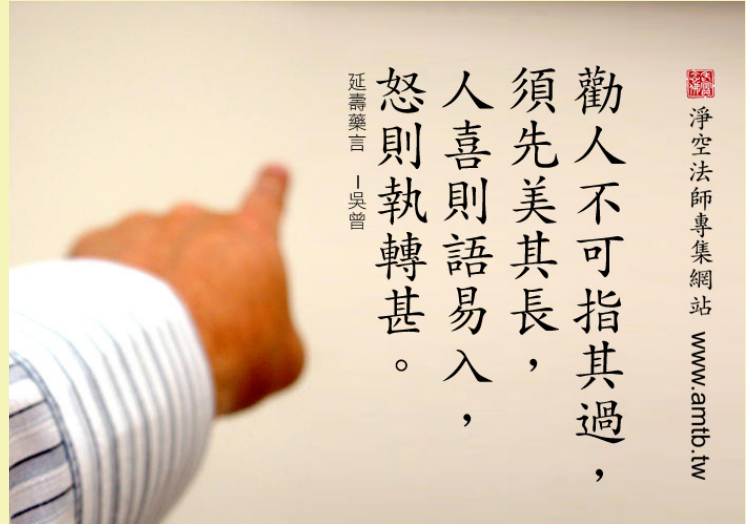 淨空法師專集網站 www.amtb.tw
勸人不可指其過，
須先美其長，
人喜則語易入，
怒則執轉甚。
延壽藥言 －吳曾